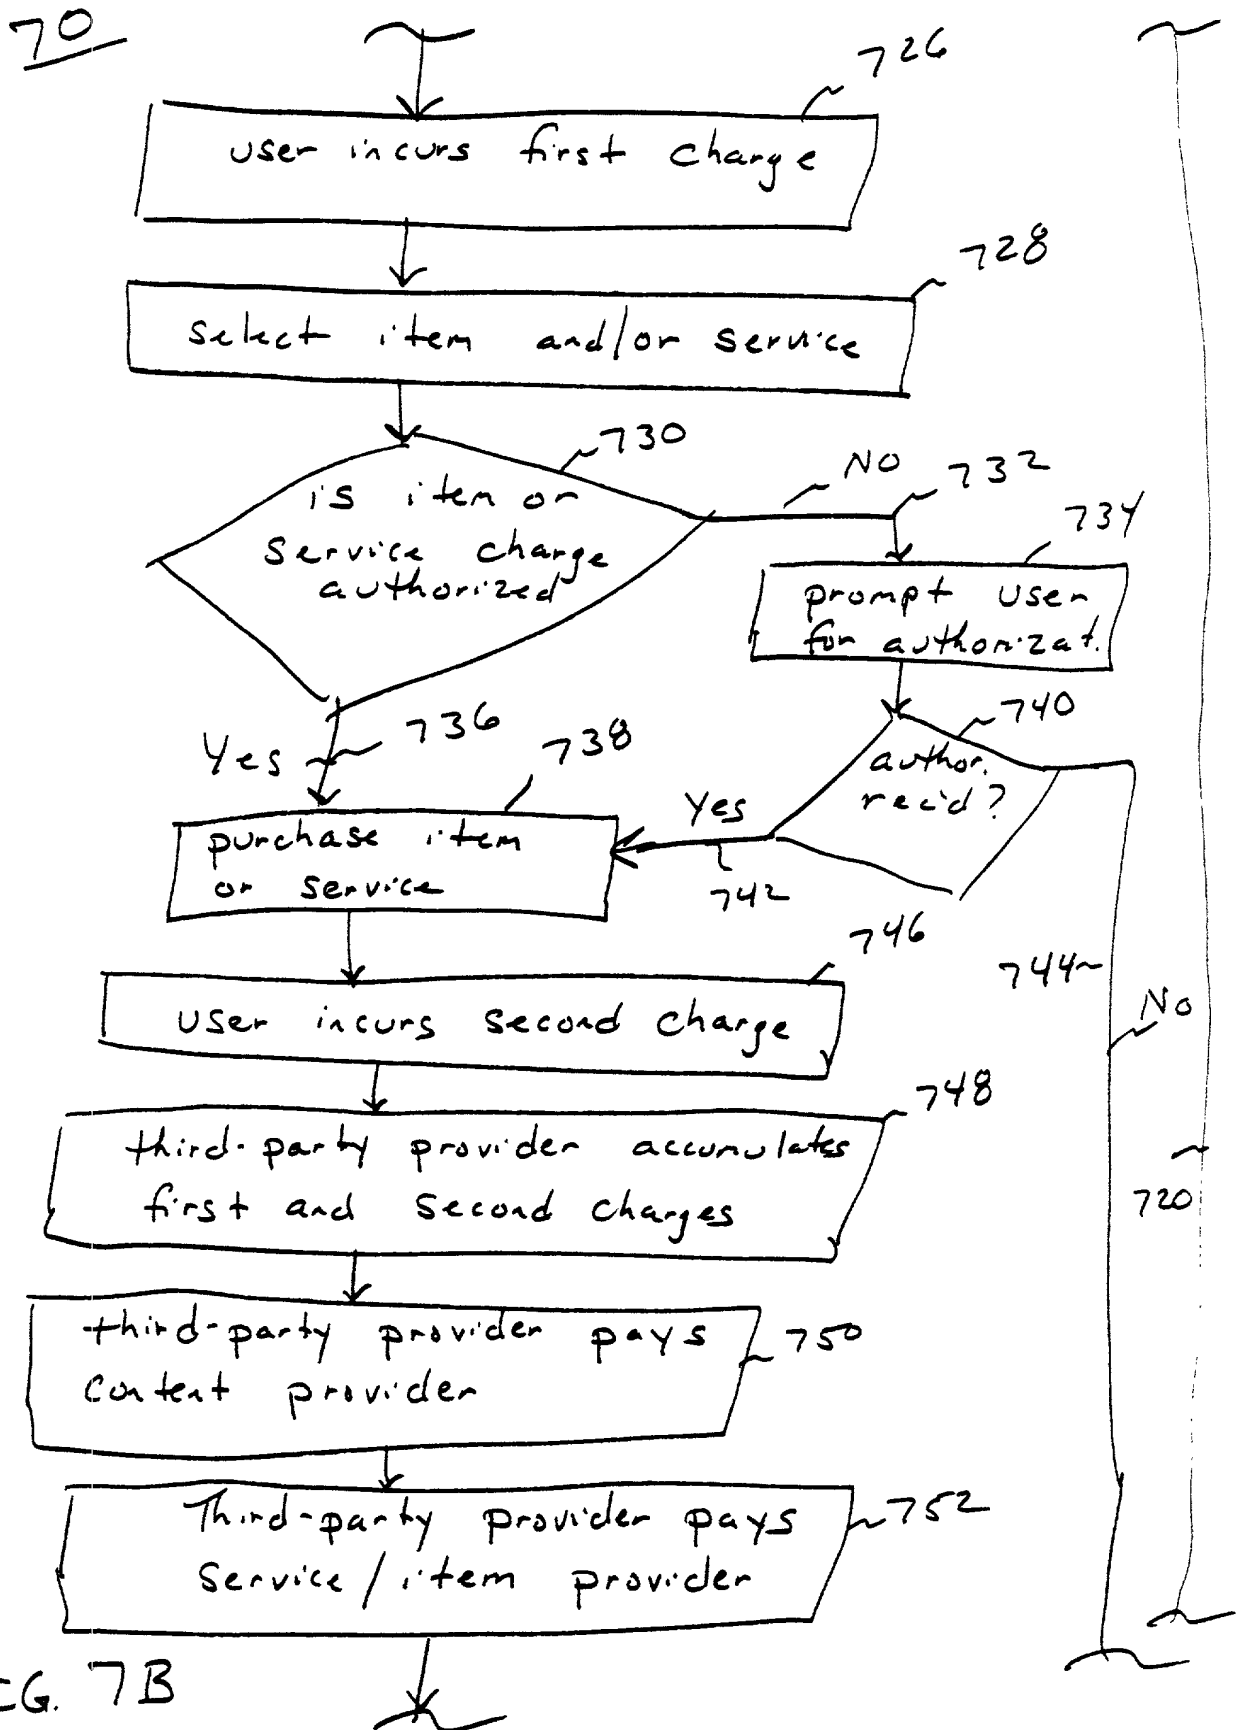 70
726
user incurs first charge
728
select item and/or service
730
NO
732
is item or
service charge
authorized
734
prompt user
for authorizat.
Yes
736
738
740
author.
rec'd?
Yes
742
purchase item
or service
744
No
746
user incurs second charge
748
third-party provider accumulates
first and second charges
720
third-party provider pays
content provider
750
Third-party provider pays
service/item provider
752
FIG. 7B